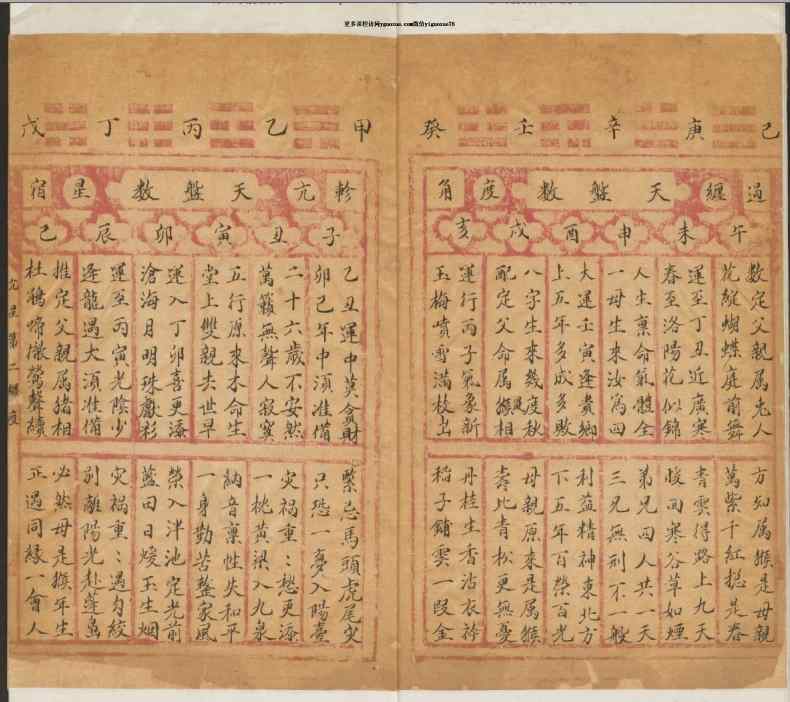 更多课程访问
己 庚 辛 壬 癸
過 纏 天盤數 度 角
午 未 申 酉 戌 亥
數定父親属老人
花綻蝴蝶庭前舞
運至丁丑近廣寒
春至洛陽花似錦
人生禀命氣體全
一母生來汝為四
大運壬寅逢貴鄉
上五年多成多敗
八字生來幾度秋
配定父命属猴相
運行丙子氣象新
玉梅噴雪滿枝出
方知属猴是母親
萬紫千紅総是春
青雲得路上九天
暖回寒谷草如煙
弟兄四人共一天
三兄無刑不一般
利益精神東北方
下五年百榮百光
母親原來是属猴
壽比青松更無憂
丹桂生香沾衣袊
稻子鋪雲一段金
甲 乙 丙 丁 戊
軫 亢 天盤數 星 宿
子 丑 寅 卯 辰 巳
乙丑運中莫貪財
卯己年中須准備
二十六歲不安然
萬籟無聲人寂寞
五行原來木命生
堂上雙親去世早
運入丁卯喜更深
滄海月明珠獻彩
運至丙寅光陰少
逢龍遇大須准備
推定父親属猪相
杜鵑啼 鶯聲續
緊忌馬頭虎尾災
只恐一夢入陽臺
災禍重〻愁更深
一桃黃梁入九泉
納音禀性失和平
一身勤苦整家風
榮入泮池定光前
藍田日煖玉生烟
災禍重〻遇勾絞
別離陽光赴蓬島
必然母是猴年生
正遇同緣一會人
亢星第二 度